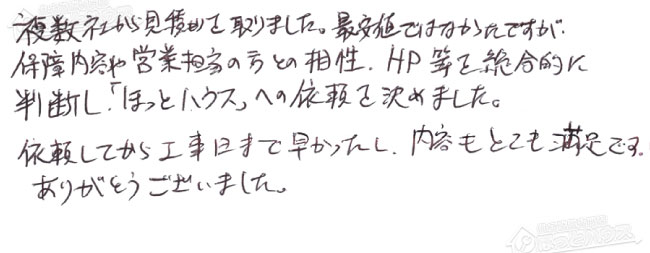 複数社から見積りを取りました。最安値ではなかったですが
保障内容や営業担当の方との相性、HP等を総合的に
判断し、「ほっとハウス」への依頼を決めました。
依頼してから工事日まで早かったし、内容もとても満足です。
ありがとうございました。